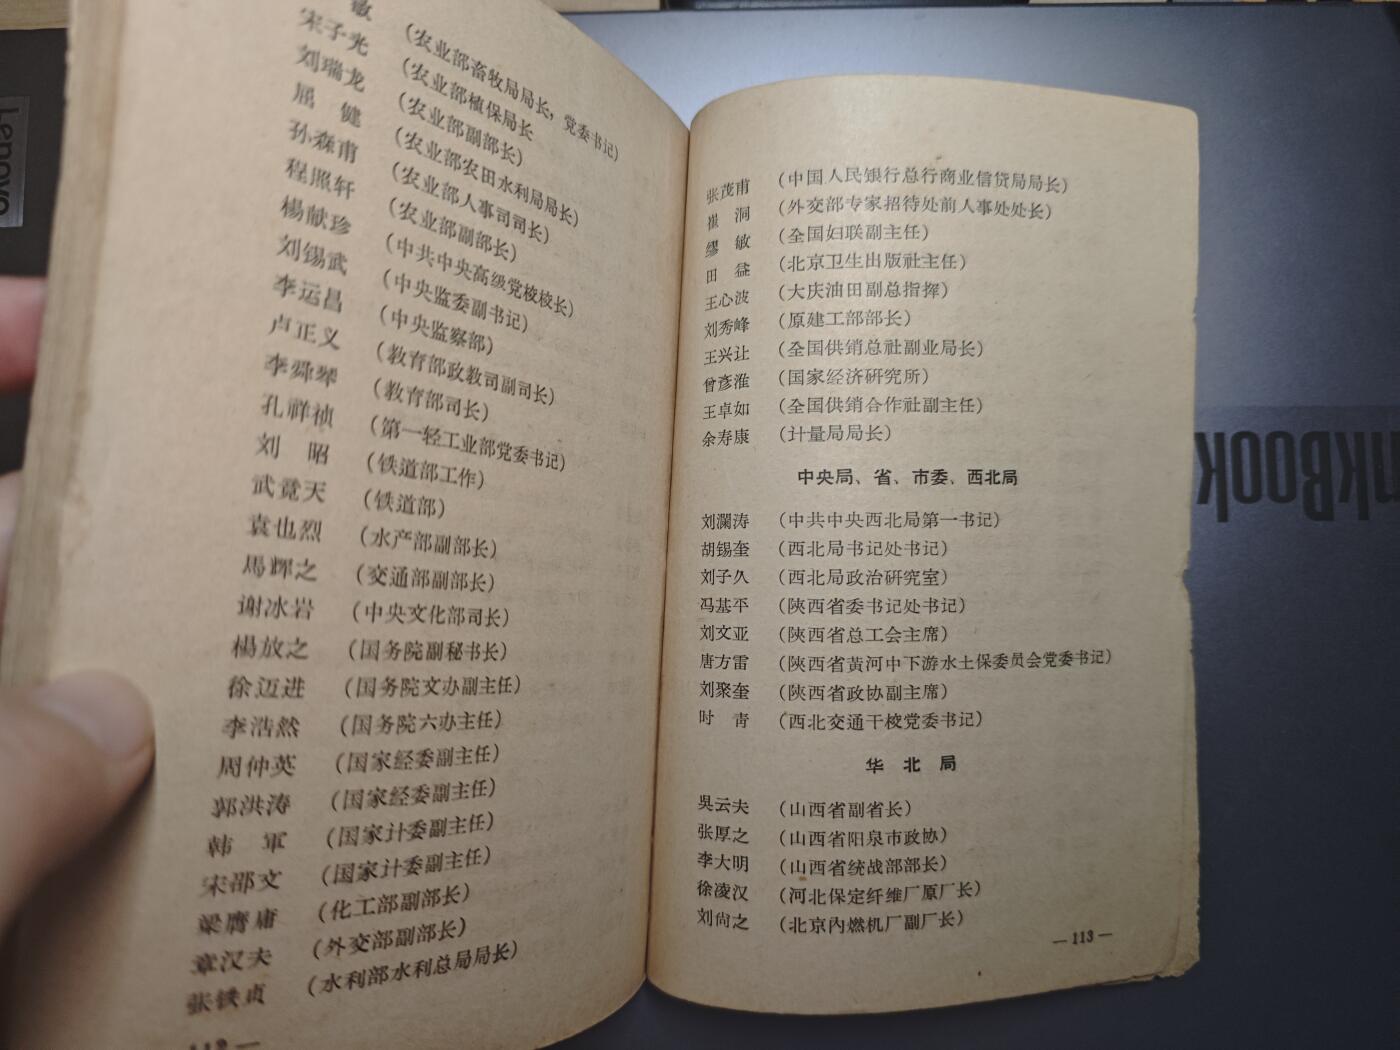 敏 (农业部畜牧局局长，党委书记)
宋子光 (农业部植保局长
刘瑞龙 (农业部副部长)
屈 健 (农业部农田水利局局长)
孙森甫 (农业部人事司司长)
程照轩 (农业部副部长)
楊献珍 (中共中央高级党校校长)
刘锡武 (中央监委副书记)
李运昌 (中央监察部)
卢正义 (教育部政教司副司长)
李舜琴 (教育部司长)
孔祥祯 (第一轻工业部党委书记)
刘 昭 (铁道部工作)
武竟天 (铁道部)
袁也烈 (水产部副部长)
馬辉之 (交通部副部长)
谢冰岩 (中央文化部司长)
楊放之 (国务院副秘书长)
徐迈进 (国务院文办副主任)
李浩然 (国务院六办主任)
周仲英 (国家经委副主任)
郭洪涛 (国家经委副主任)
韩 軍 (国家计委副主任)
宋邵文 (国家计委副主任)
梁膺庸 (化工部副部长)
章汉夫 (外交部副部长)
张铁贞 (水利部水利总局局长)
张茂甫 (中国人民银行总行商业信贷局局长)
崔 洞 (外交部专家招待处前人事处处长)
缪 敏 (全国妇联副主任)
田 益 (北京卫生出版社主任)
王心波 (大庆油田副总指挥)
刘秀峰 (原建工部部长)
王兴让 (全国供销总社副业局长)
曾彦淮 (国家经济研究所)
王卓如 (全国供销合作社副主任)
余寿康 (计量局局长)
中央局、省、市委、西北局
刘瀾涛 (中共中央西北局第一书记)
胡锡奎 (西北局书记处书记)
刘子久 (西北局政治研究室)
冯基平 (陕西省委书记处书记)
刘文亚 (陕西省总工会主席)
唐方雷 (陕西省黄河中下游水土保委员会党委书记)
刘聚奎 (陕西省政协副主席)
时 青 (西北交通干校党委书记)
华 北 局
吳云夫 (山西省副省长)
张厚之 (山西省阳泉市政协)
李大明 (山西省统战部部长)
徐凌汉 (河北保定纤维厂原厂长)
刘尙之 (北京內燃机厂副厂长)
—113—
Lenovo
nkBook